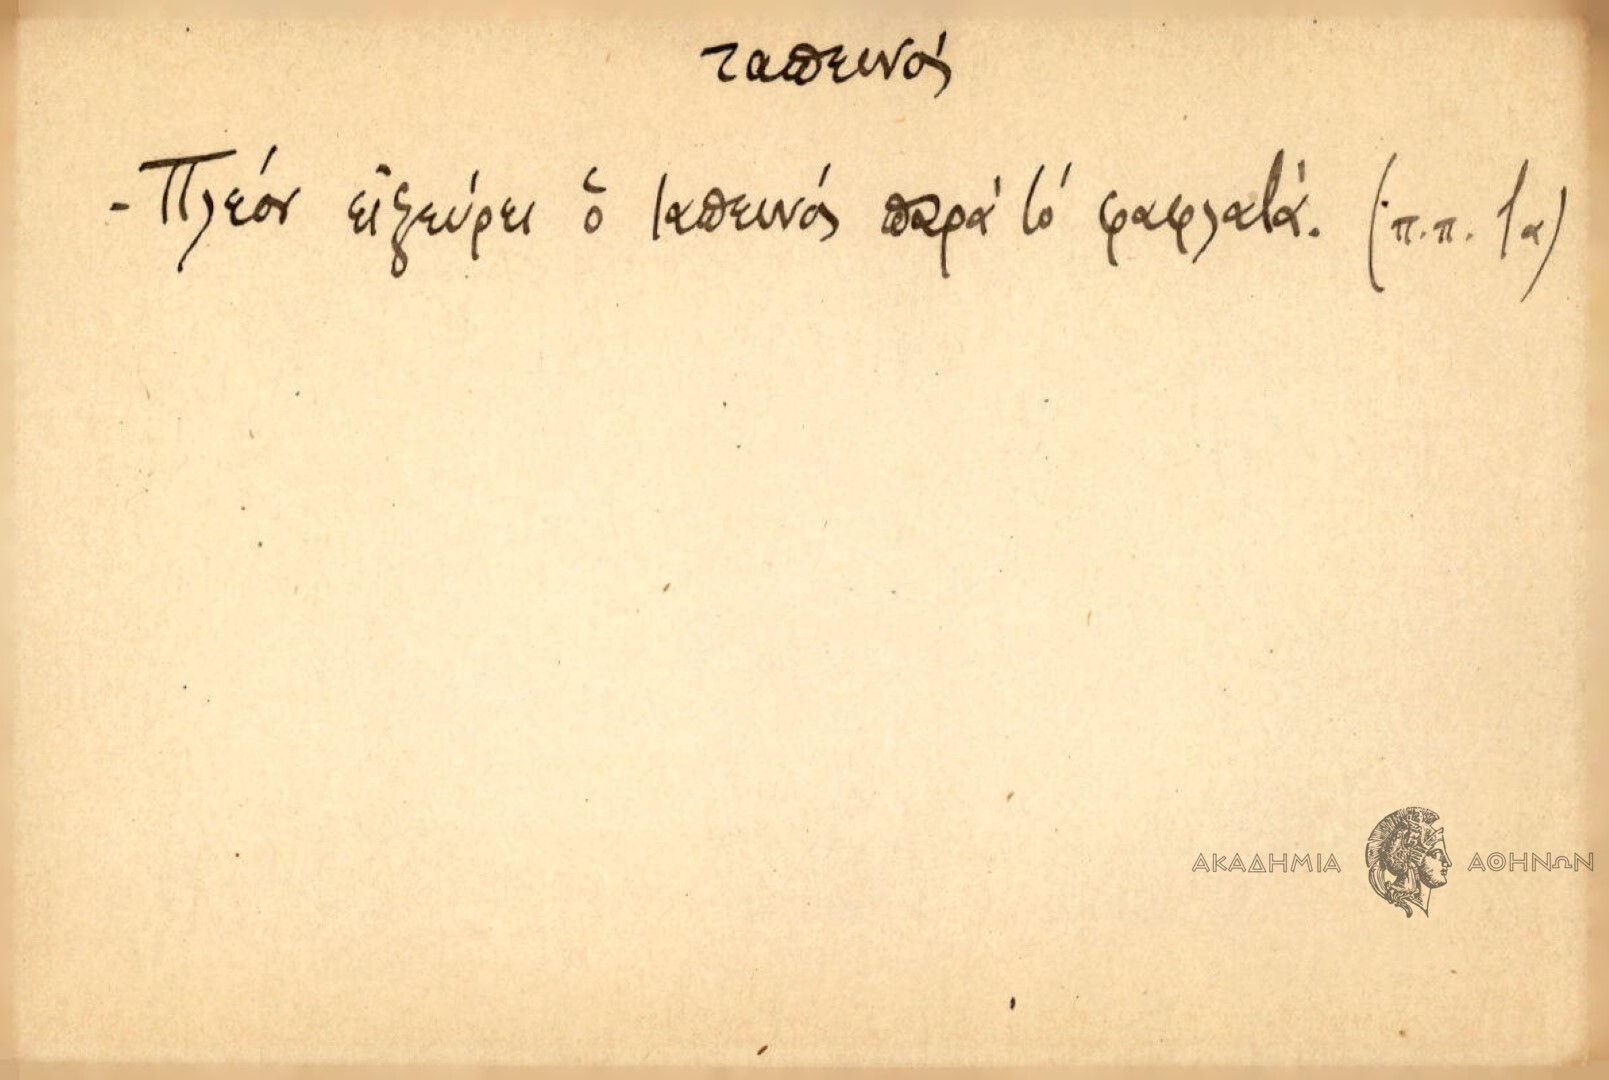 ταπεινός
- Πλέον εἰξεύρει ὁ ταπεινός παρά τό φαφλατά. (π.π. 1α)
ΑΚΑΔΗΜΙΑ ΑΘΗΝΩΝ